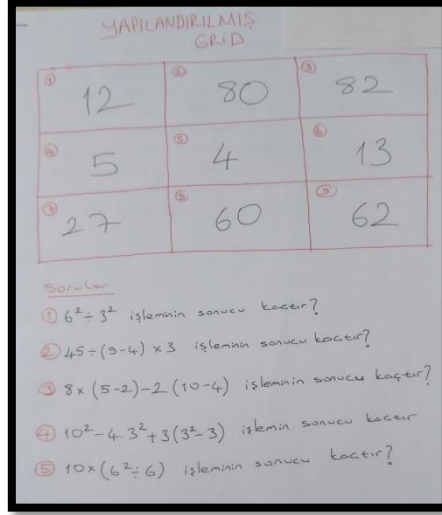 YAPILANDIRILMIŞ
GRİD
① 12 ② 80 ③ 82
④ 5 ⑤ 4 ⑥ 13
⑦ 27 ⑧ 60 ⑨ 62
Sorular
① 6² ÷ 3² işleminin sonucu kaçtır?
② 45 ÷ (9-4) x 3 işleminin sonucu kaçtır?
③ 8 x (5-2) - 2 (10-4) işleminin sonucu kaçtır?
④ 10² - 4. 3² + 3 (3² - 3) işlemin sonucu kaçtır
⑤ 10 x (6² ÷ 6) işleminin sonucu kaçtır?